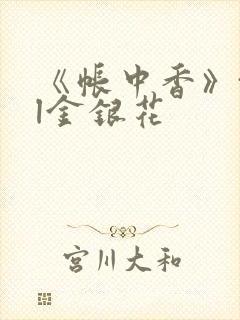 《帐中香》
|金银花
宫川大和